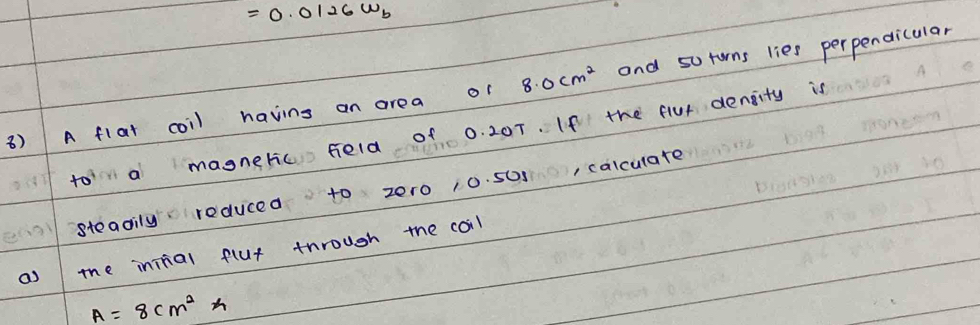 = 0.0126 Wb
8) A flat coil having an area of 8.0cm² and 50 turns lies perpendicular
to a magnetic field of 0.20T. If the flux density is
steadily reduced to zero, 0.50s, calculate
a) the initial flux through the coil
A = 8cm² x